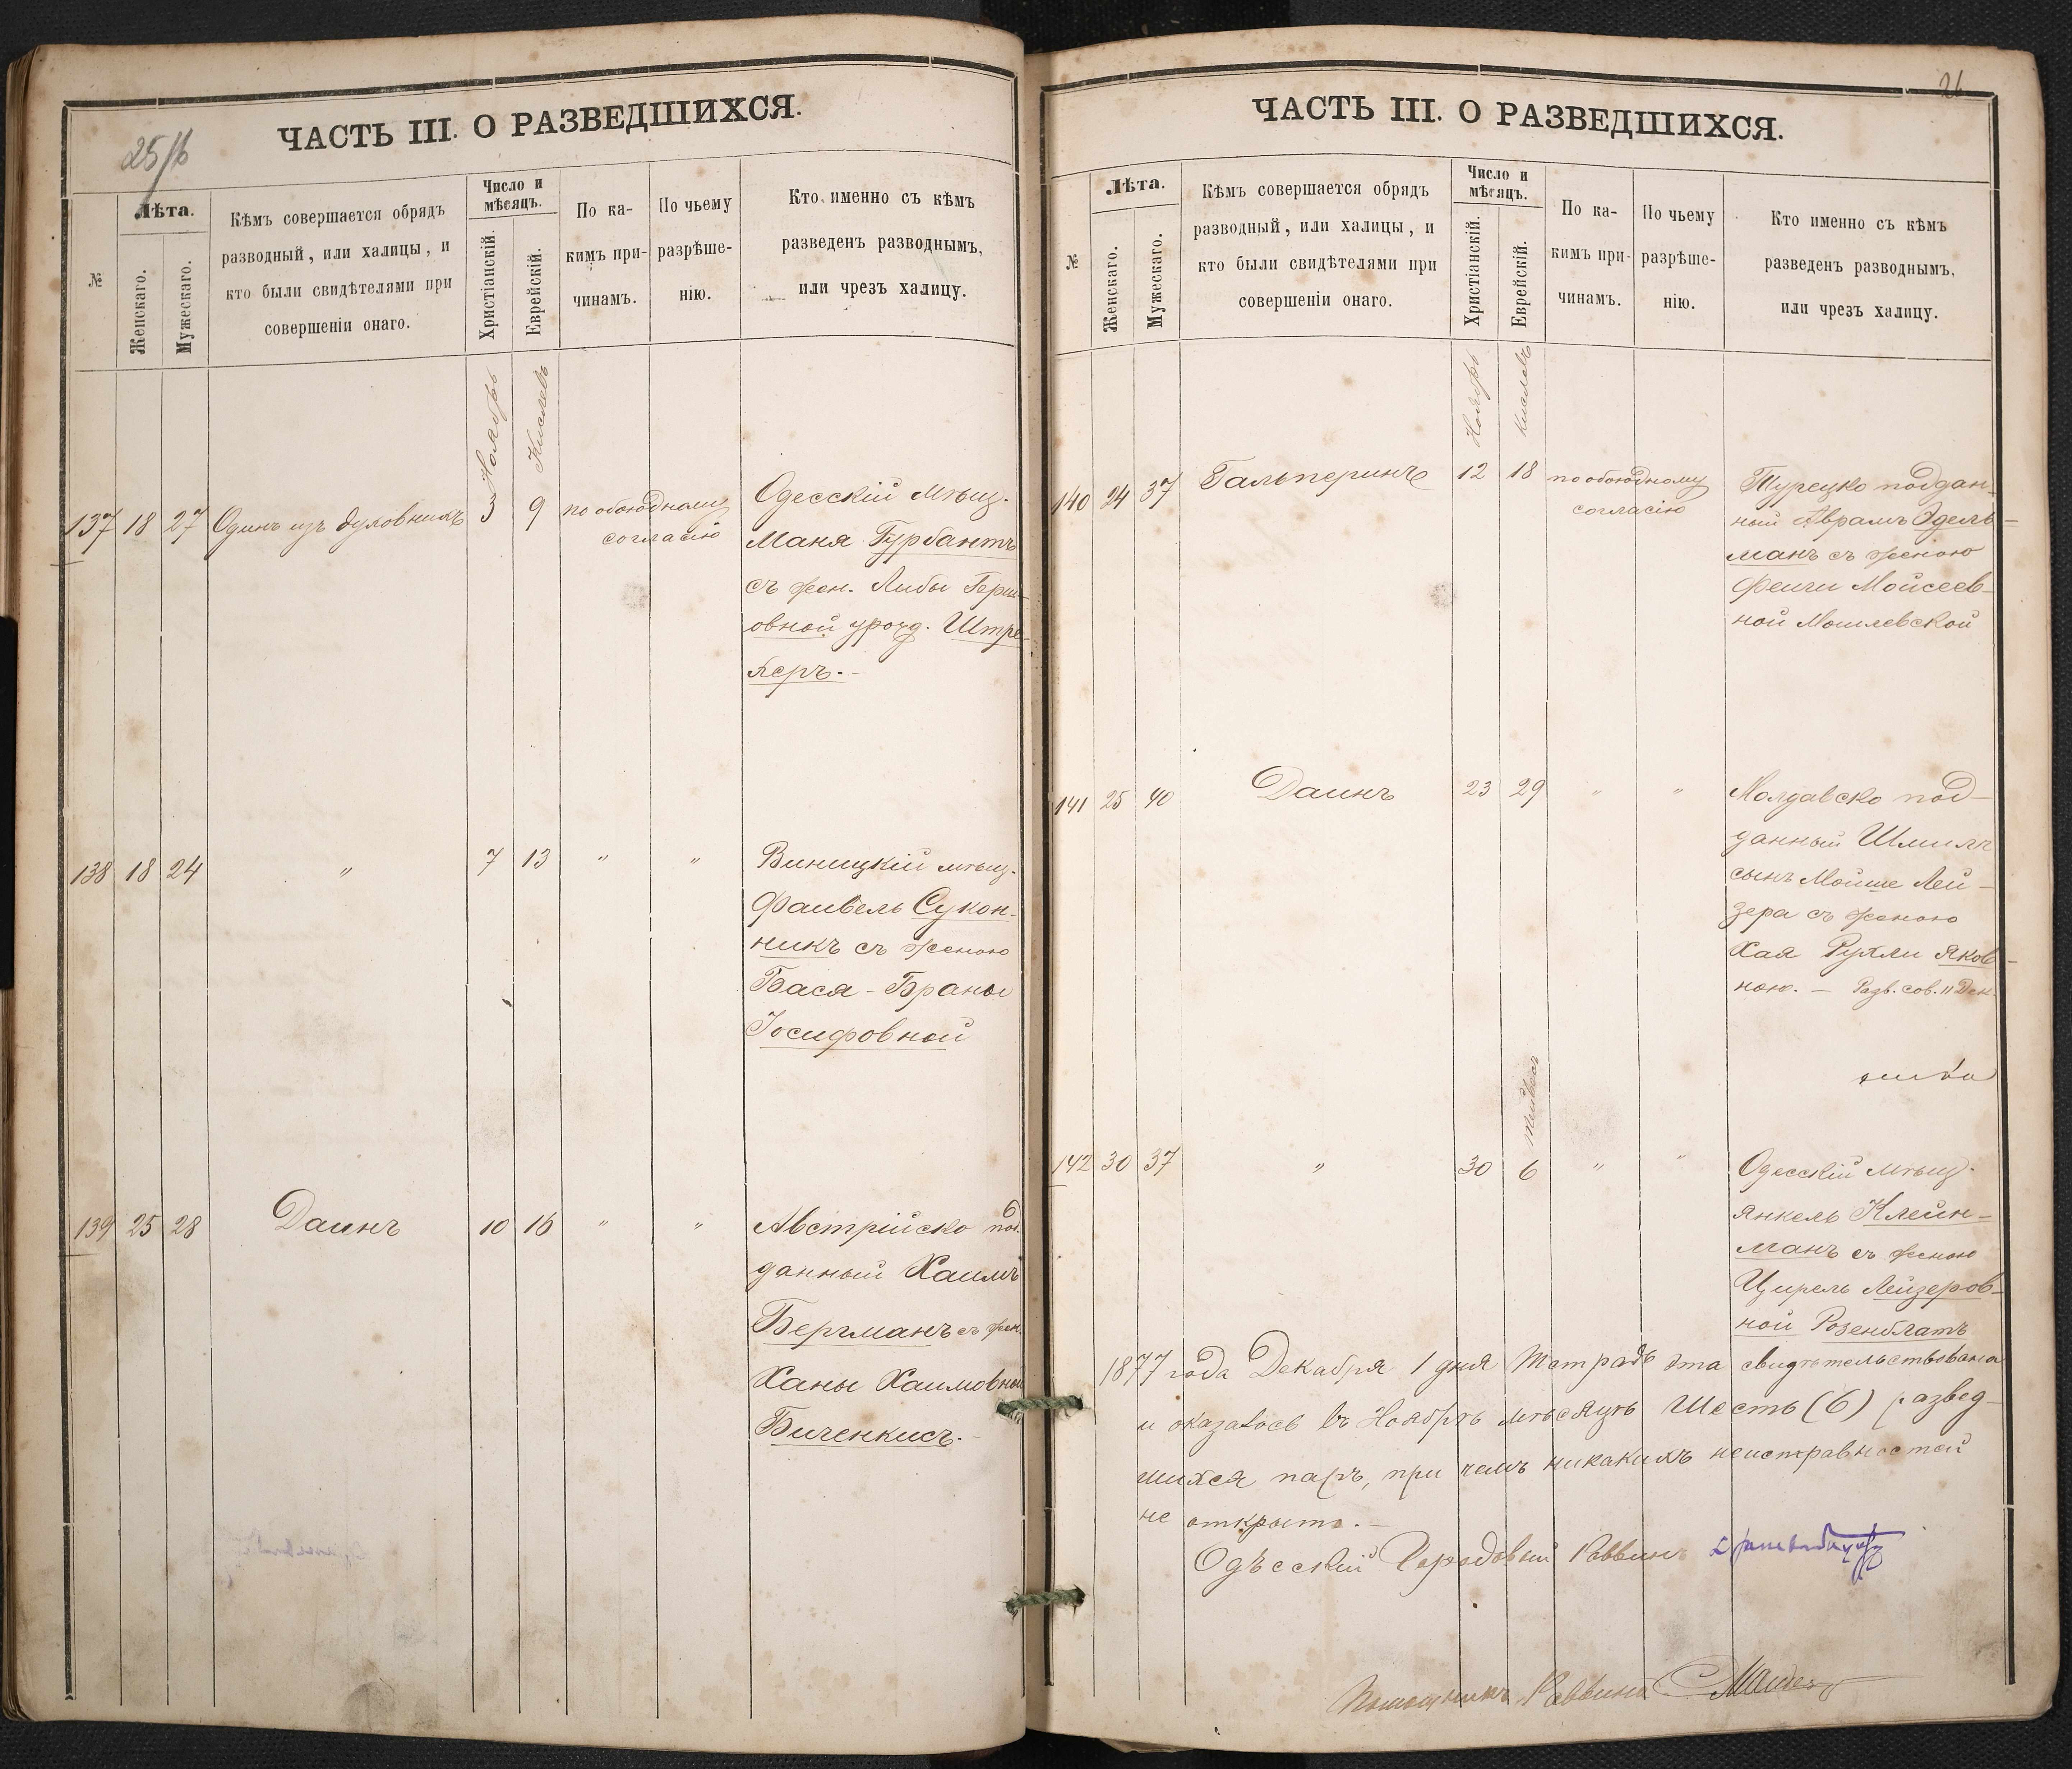 25/б
ЧАСТЬ III. О РАЗВЕДШИХСЯ.
№
Лѣта.
Женскаго.
Мужескаго.
Кѣмъ совершается обрядъ
разводный, или халицы, и
кто были свидѣтелями при
совершеніи онаго.
Число и
мѣсяцъ.
Христіанскій.
Еврейскій.
По ка-
кимъ при-
чинамъ.
По чьему
разрѣше-
нію.
Кто именно съ кѣмъ
разведенъ разводнымъ,
или чрезъ халицу.
Ноябрь
Кислевъ
137 18 27 Одинъ изъ духовныхъ 3 9 по обоюдному
согласію
Одесскій мѣщ.
Маня Гурбантъ
съ жен. Либы Герш-
овной урожд. Штре-
керъ.-
138 18 24 " 7 13 " "
Виницкій мѣщ.
Файвель Сукон-
никъ съ женою
Бася-Браны
Іосифовной
139 25 28 Даинъ 10 16 " "
Австрійско под-
данный Хаимъ
Бергманъ съ жен.
Ханы Хаимовной
Биченкисъ.-
26
ЧАСТЬ III. О РАЗВЕДШИХСЯ.
№
Лѣта.
Женскаго.
Мужескаго.
Кѣмъ совершается обрядъ
разводный, или халицы, и
кто были свидѣтелями при
совершеніи онаго.
Число и
мѣсяцъ.
Христіанскій.
Еврейскій.
По ка-
кимъ при-
чинамъ.
По чьему
разрѣше-
нію.
Кто именно съ кѣмъ
разведенъ разводнымъ,
или чрезъ халицу.
Ноябрь
Кислевъ
140 24 37 Гальперинъ 12 18 по обоюдному
согласію
Турецко поддан-
ный Аврамъ Эдель-
манъ съ женою
Фейги Мойсеев-
ной Могилевской
141 25 40 Даинъ 23 29 " "
Молдавско под-
данный Шмилъ
сынъ Мойше Лей-
зера съ женою
Хая Рухли Яков-
ною. — Разв. сов. 11 Дек.
Тейвесъ
142 30 37 " 30 6 " "
Одесскій мѣщ.
Янкель Клейн-
манъ съ женою
Цирель Лейзеров-
ной Розенблатъ
1877 года Декабря 1 дня Тетрадь эта свидѣтельствована
и оказалось въ Ноябрѣ мѣсяцѣ Шесть (6) развед-
шихся паръ, при чемъ никакихъ неисправностей
не открыто.-
Одѣсскій Городовый Раввинъ
Помощникъ Раввина